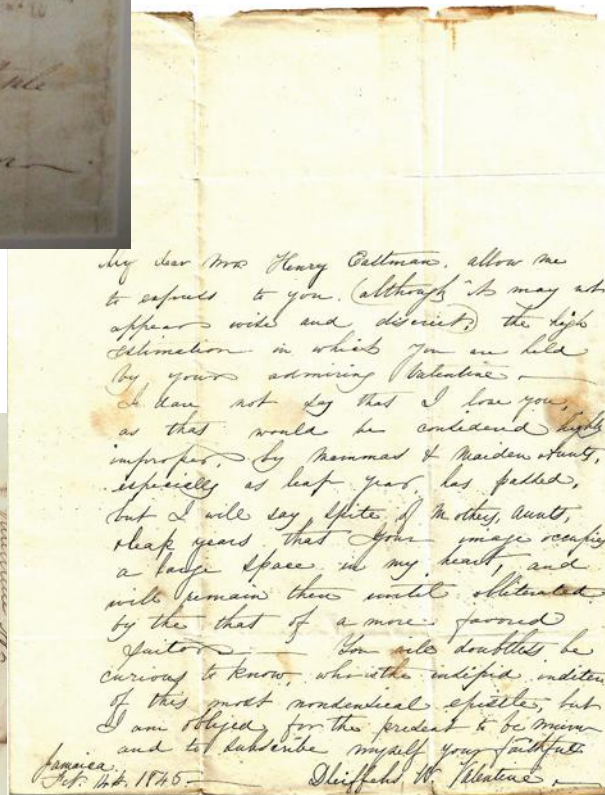 My dear Mr Henry Eastman, allow me
to express to you, (although it may not
appear wise and discreet,) the high
estimation in which you are held
by your admiring Valentine —
I dare not say that I love you,
as that would be considered highly
improper, by mammas & maiden Aunts,
especially as leap year, has passed,
but I will say, spite of Mothers, Aunts,
& leap years that your image occupies
a large space in my heart, and
will remain there until obliterated
by the that of a more favored
suitor — You will doubtless be
curious to know, who is the insipid inditer
of this most nonsensical epistle, but
I am obliged, for the present to be mum
and to subscribe myself your faithful
Jamaica
Feb. 14th. 1845. — W. Valentine. —